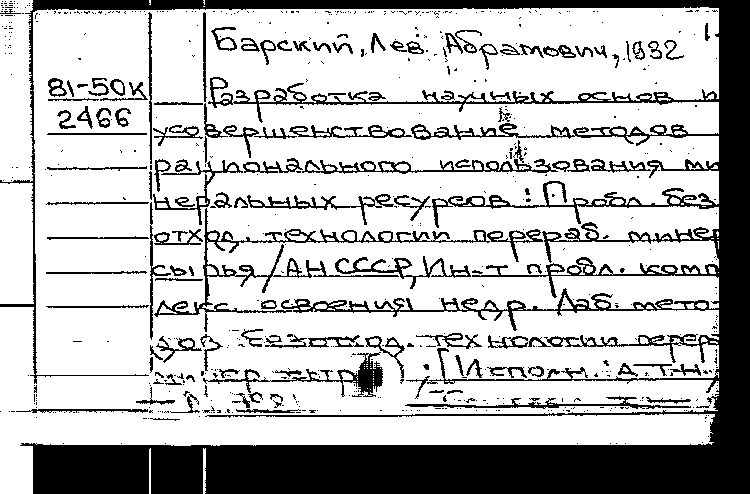 Барский, Лев Абрамович, 1932 1.
81-50к Разработка научных основ и
2466 усовершенствование методов
рационального использования ми
неральных ресурсов : Пробл. без
отход. технологии перераб. минер
сырья / АН СССР, Ин-т пробл. комп
лекс. освоения недр. Лаб. мето-
дов безотход. технологии перера
[Исполн.: д.т.н.